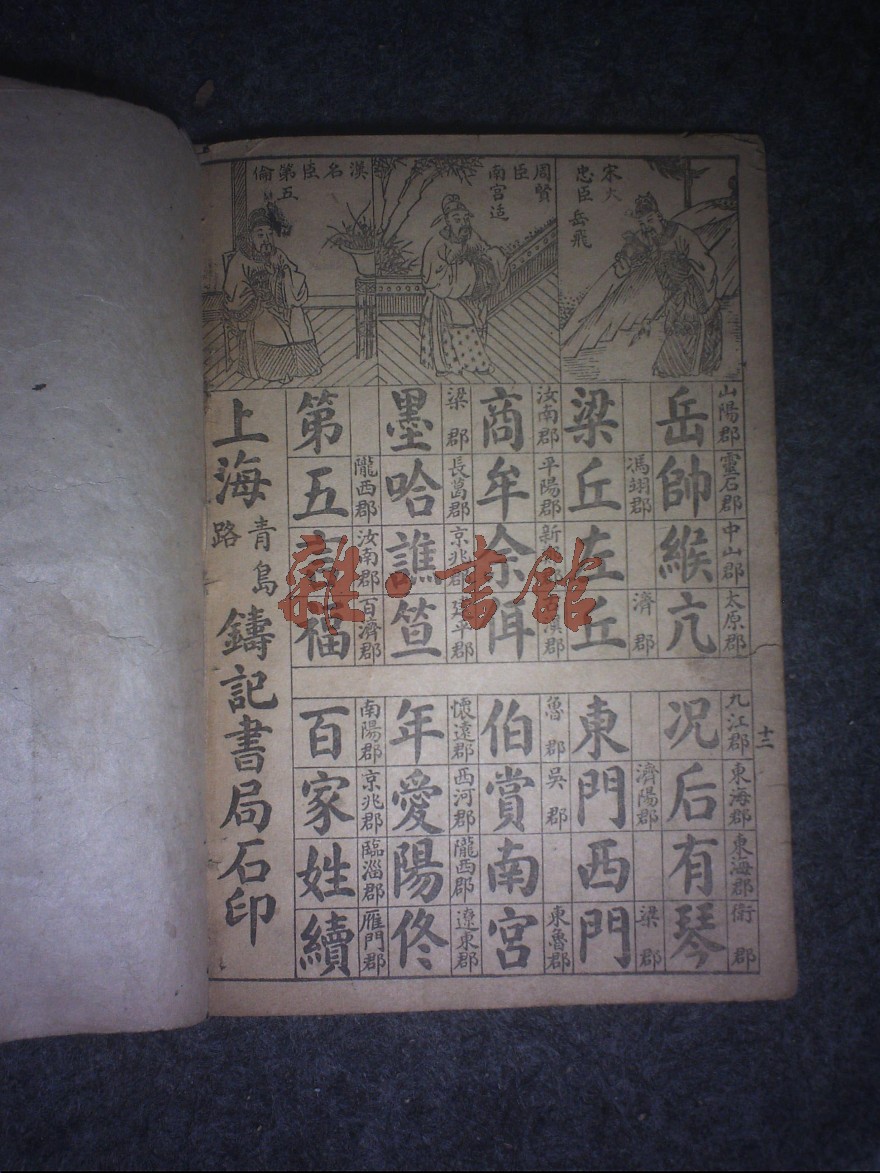 宋大忠臣岳飛
周賢臣南宮适
漢名臣第五倫
山陽郡 靈石郡 中山郡 太原郡
岳帥緱亢
馮翊郡 濟郡
梁丘左丘
汝南郡 平陽郡 新
商牟佘佴
梁郡 長葛郡 京兆郡 平郡
墨哈譙笪
隴西郡 汝南郡 百濟郡
第五言福
十二
九江郡 東海郡 東海郡 衛郡
况后有琴
濟陽郡 梁郡
東門西門
魯郡 吳郡 東魯郡
伯賞南宮
懷遠郡 西河郡 隴西郡 遼東郡
年愛陽佟
南陽郡 京兆郡 臨淄郡 雁門郡
百家姓續
上海青島路鑄記書局石印
雜·書館